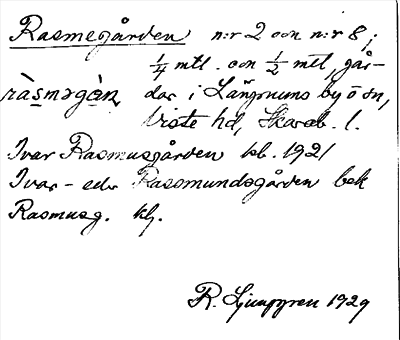 Rasmegården n:r 2 och n:r 8,
1/4 mtl. och 1/2 mtl, går-
dar i Längnums by o sn,
Viste hd, Skarab. l.
Ivar Rasmusgården kb. 1921
Ivar- eller Rassmundsgården bek
Rasmusg. kj.
R. Ljunggren 1929